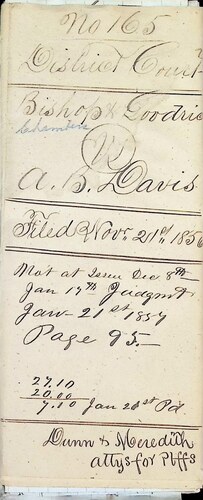 No 165
District Court
Bishop & Goodric
Vs
A. B. Davis
Filed Novr. 21st, 1856
Mot at Issue Dec 8th
Jan 17th Judgmt
Jan- 21st 1857
Page 95-
27.10
20.00
7.10 Jan 26st Pd
Dunn & Meredith
attys for Plffs